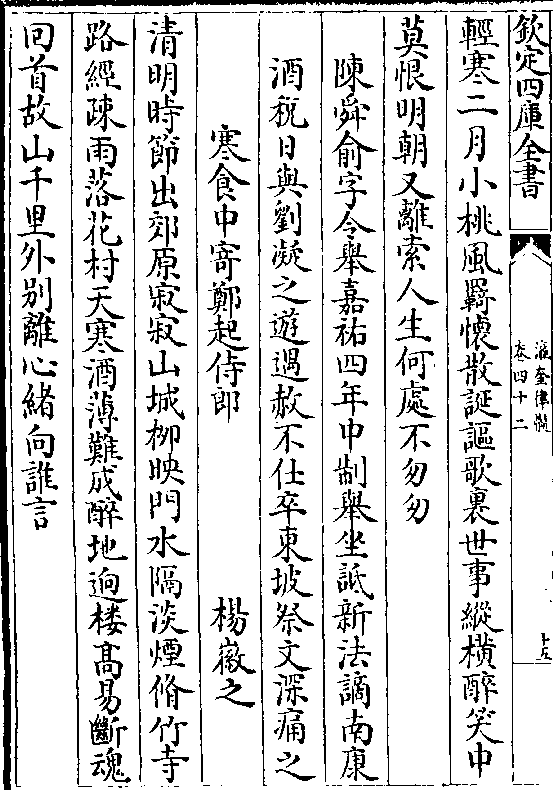 欽定四庫全書
瀛奎律髓
卷四十二
十五
輕寒二月小桃風羇懷散誕謳歌裏世事縱横醉笑中
莫恨明朝又離索人生何處不匆匆
陳舜俞字令舉嘉祐四年中制舉坐詆新法謫南康
酒稅日與劉凝之遊遇赦不仕卒東坡祭文深痛之
寒食中寄鄭起侍郎 楊徽之
清明時節出郊原寂寂山城柳映門水隔淡煙脩竹寺
路經疎雨落花村天寒酒薄難成醉地逈楼髙易斷魂
回首故山千里外别離心緒向誰言